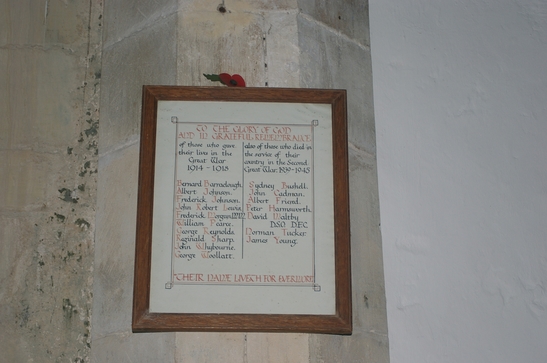 TO THE GLORY OF GOD
AND IN GRATEFUL REMEMBRANCE
of those who gave
their lives in the
Great War
1914 - 1918
Bernard Barnadough.
Albert Johnson.
Frederick Johnson.
John Robert Lewis.
Frederick Morgan
William Pearce.
George Reynolds.
Reginald Sharp.
John Whybourne.
George Woollatt.
also of those who died in
the service of their
country in the Second
Great War. 1939-1945
Sydney Bushell.
John Cadman.
Albert Friend.
Peter Harmsworth.
David Maltby
DSO DFC
Norman Tucker.
James Young.
THEIR NAME LIVETH FOR EVERMORE